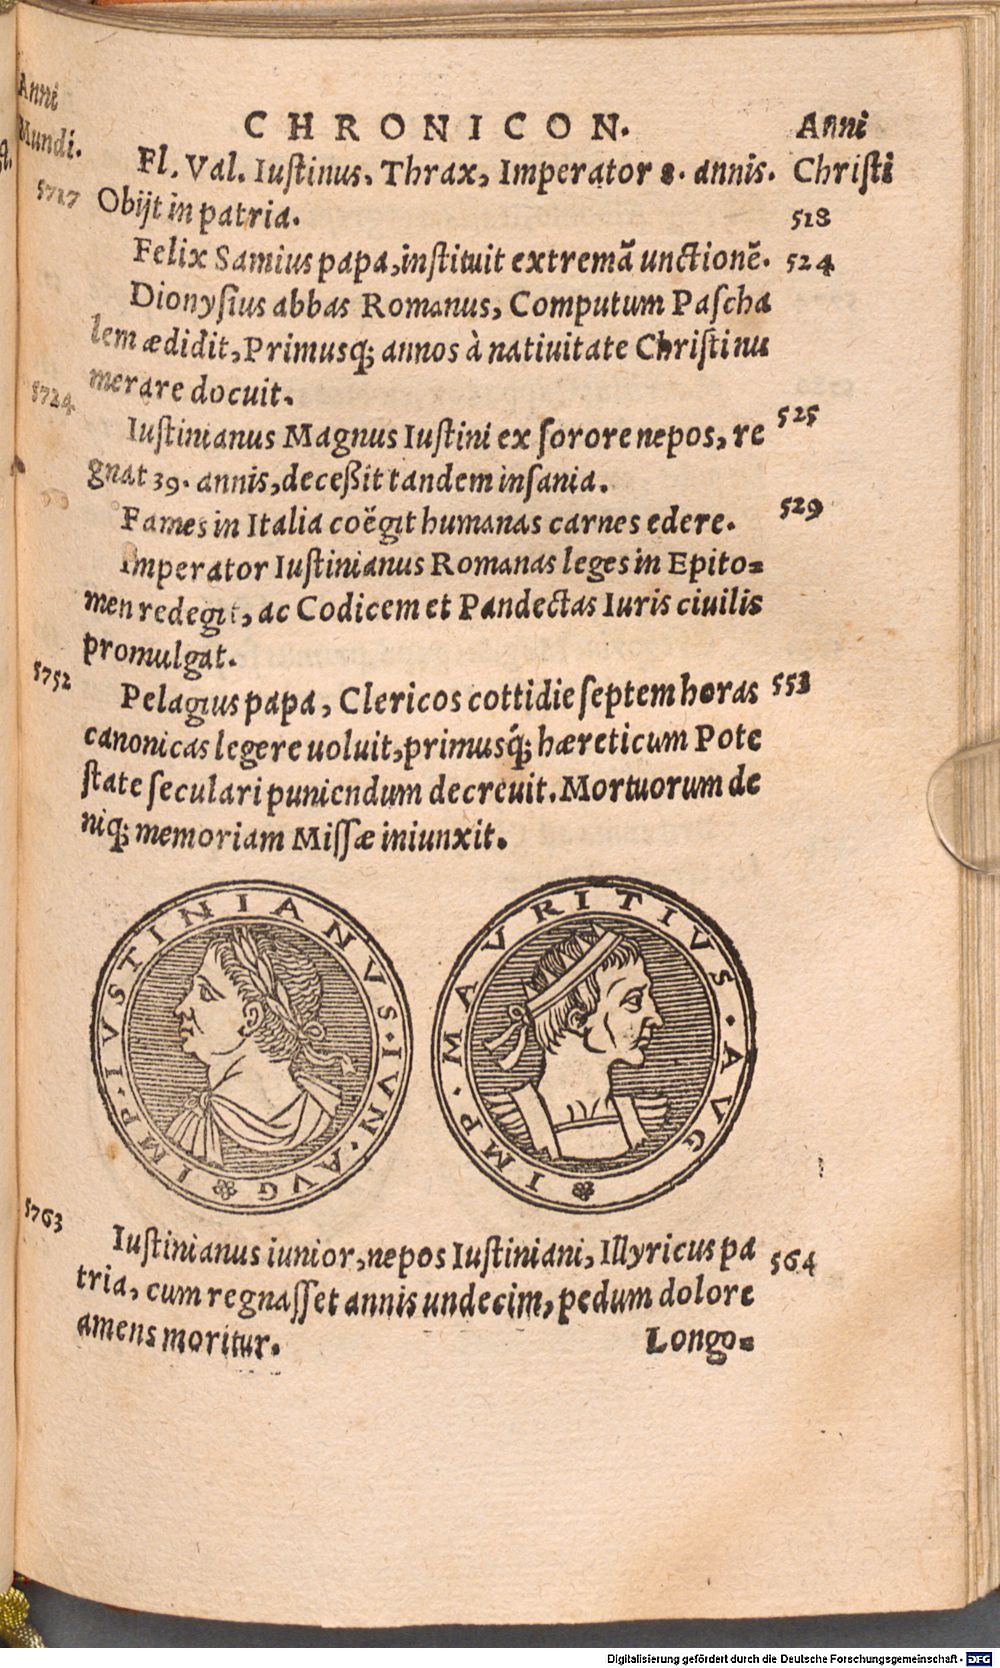 Anni
Mundi.
CHRONICON.
Anni
Christi
Fl. Val. Iuſtinus, Thrax, Imperator 8. annis.
5717
Obijt in patria.
518
Felix Samius papa, inſtituit extremã unctionẽ.
524
Dionyſius abbas Romanus, Computum Paſcha
lem ædidit, Primusq; annos à natiuitate Chriſti nu
merare docuit.
5724
Iuſtinianus Magnus Iuſtini ex ſorore nepos, re
525
gnat 39. annis, deceßit tandem inſania.
Fames in Italia coëgit humanas carnes edere.
529
Imperator Iuſtinianus Romanas leges in Epito=
men redegit, ac Codicem et Pandectas Iuris ciuilis
promulgat.
5752
Pelagius papa, Clericos cottidie ſeptem horas
553
canonicas legere uoluit, primusq́; hæreticum Pote
ſtate ſeculari puniendum decreuit. Mortuorum de
niq; memoriam Miſſæ iniunxit.
IMP · IVSTINIANVS · IVN · AVG
IMP · MAVRITIVS · AVG
5763
Iuſtinianus iunior, nepos Iuſtiniani, Illyricus pa
564
tria, cum regnaſſet annis undecim, pedum dolore
amens moritur.
Longo=
Digitalisierung gefördert durch die Deutsche Forschungsgemeinschaft - DFG